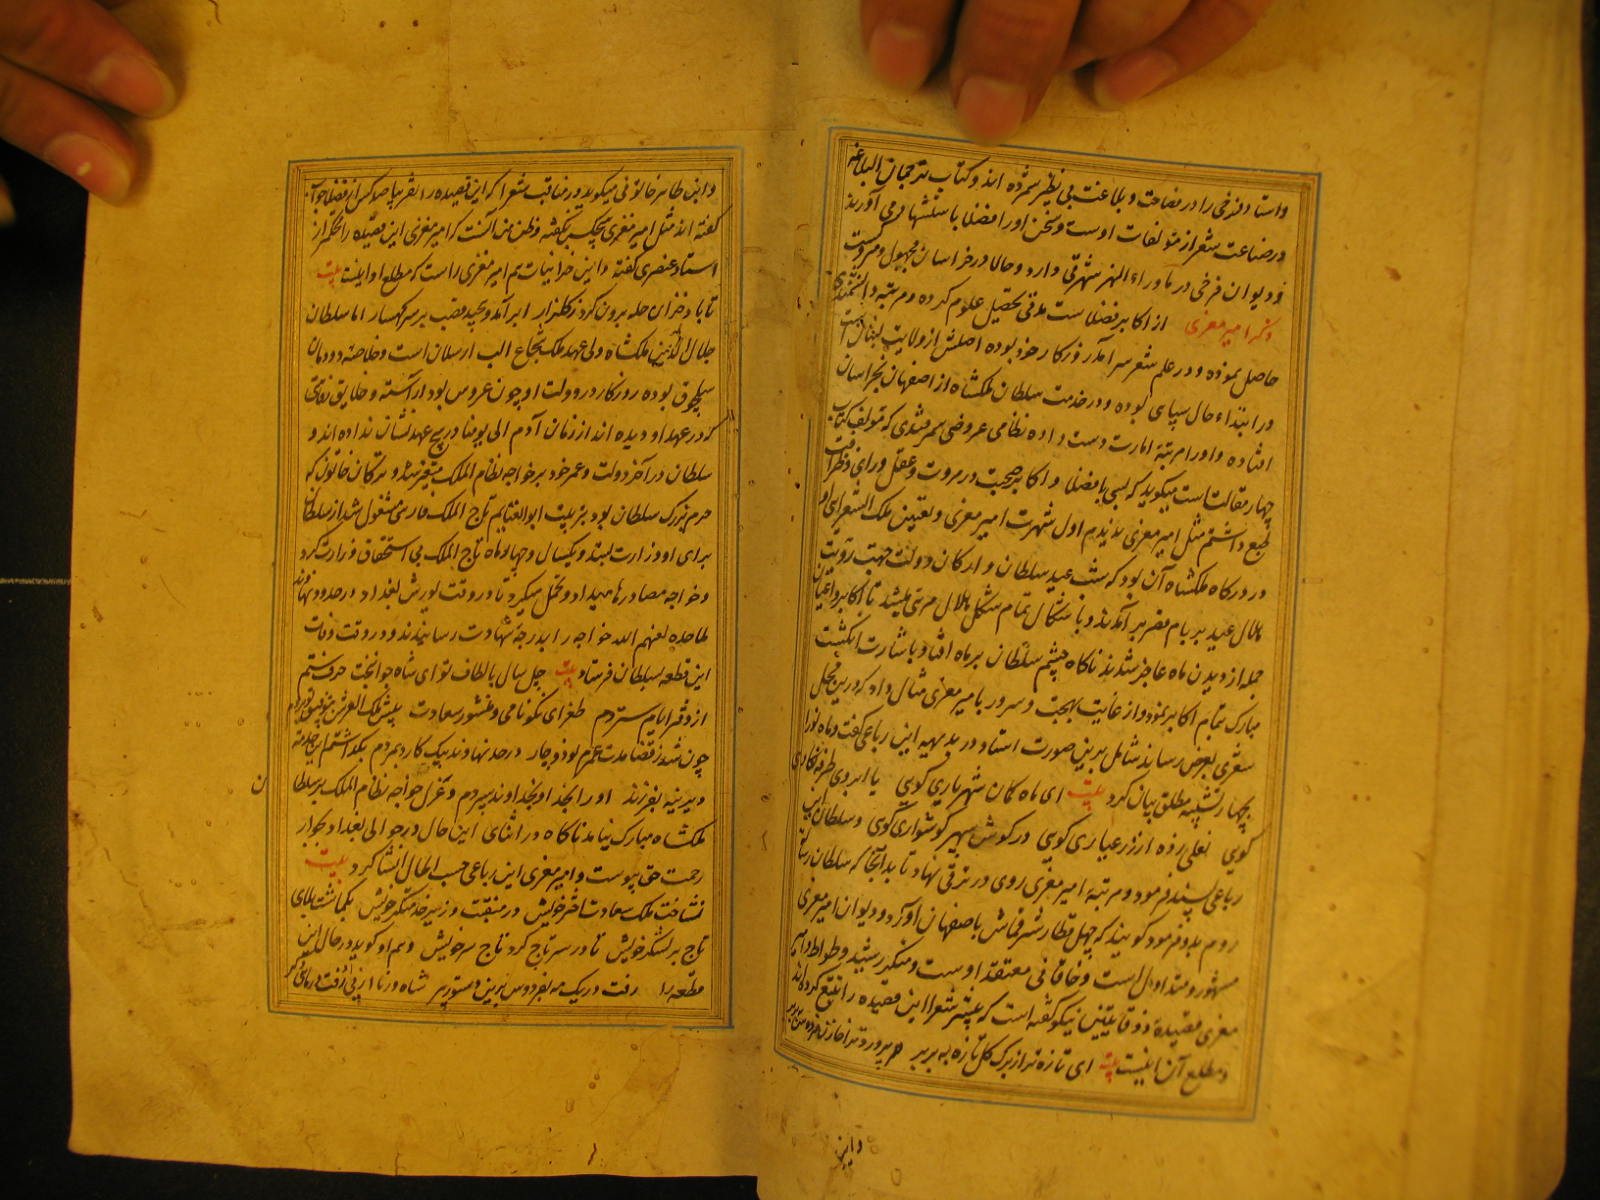 و استاد فرخی را در فصاحت و بلاغت بی نظیر شمرده اند و کتاب ترجمان البلاغه
در صناعت شعر از مؤلفات اوست و سخن او را فضلا باستشهاد می آورند
و دیوان فرخی در ماوراء النهر شهرتی دارد و حالا در خراسان مجهول و متروکست
ذکر امیر معزی از اکابر فضلاست مدتی تحصیل علوم کرده و مرتبه دانشمندی
حاصل نموده و در علم شعر سرآمد روزکار خود بوده اصلش از ولایت
و در ابتداء حال سپاهی بوده و در خدمت سلطان ملکشاه از اصفهان بخراسان
افتاده و او را مرتبه امارت دست داده نظامی عروضی سمرقندی که مؤلف کتاب
چهار مقالتست میکوید که بسی با فضلا و اکابر صحبت در مروت و عقل و رای و ظرافت
طبع داشتم مثل امیر معزی ندیدم اول شهرت امیر معزی و تعیین ملک الشعرایی او
در درکاه ملکشاه آن بود که شب عید سلطان و ارکان دولت جهت رؤیت
هلال عید بر بام قصر برآمدند و باشکال تمام شکل هلال مرئی میشد تا اکابر و اعیان
جمله از دیدن ماه عاجز شدند ناکاه چشم سلطان بر ماه افتاد و باشارت انکشت
مبارک بتمام اکابر نمود و از غایت بهجت و سرور بامیر معزی مثال داد که درین محل
شعری بعرض رساند شامل برین صورت استاد در بدیهه این رباعی کفت و ماه نو را
بچهار تشبیه مطلق بیان کرد بیت ای ماه کمان شهریاری کویی یا ابروی طرفه نکاری
کویی نعلی زده از زر عیاری کویی در کوش سپهر کوشواری کویی و سلطان این
رباعی پسند فرمود و مرتبه امیر معزی روی در ترقی نهاد تا بدانجا که سلطان رسالت
روم بدو فرمود کویند که چهل قطار شتر قماش باصفهان آورد و دیوان امیر معزی
مشهور و متداول است و خاقانی معتقد اوست و منکر رشید وطواط و امیر
معزی قصیدهٔ ذوقافیتین نیکو کفته است که بیشتر شعرا این قصیده را تتبع کرده اند
و مطلع آن اینست بیت ای تازه تر از برک کل تازه به بر بر
و این
و این طاهر خاتونی میکوید در مناقب شعرا که این قصیده را تقریبا صد کس از فضلا جواب
کفته اند مثل امیر معزی هیچکس نکفته و ظن من آنست که امیر معزی این قصیده را محکم تر از
استاد عنصری کفته و این خزانیات هم امیر معزی راست که مطلع او اینست بیت
تا باد خزان حله برون کرد ز کلزار ابر آمد و پیچید قصب بر سر کهسار اما سلطان
جلال الدین ملکشاه ولی عهد ملک شجاع الب ارسلان است و خلاصه دودمان
سلجوق بوده روزکار در دولت او چون عروس بود آراسته و خلایق
که در عهد او دیده اند از زمان آدم الی یومنا در هیچ عهد نشان نداده اند و
سلطان در آخر دولت و عمر خود بر خواجه نظام الملک متغیر شد و ترکان خاتون که
حرم بزرک سلطان بود بتربیت ابو الغنایم تاج الملک فارسی مشغول شد از سلطان
برای او وزارت بستد و یکسال و چهار ماه تاج الملک بی استحقاق وزارت کرد
و خواجه مصادرها میداد و تحمل میکرد تا در وقت یورش بغداد در حدود نهاوند
ملاحده لعنهم الله خواجه را بدرجه شهادت رسانیدند و در وقت وفات
این قطعه بسلطان فرستاد بیت چل سال بالطاف تو ای شاه جوانبخت حرف ستم
از دفتر ایام ستردم طغرای نکونامی و منشور سعادت پیش ملک العرش بتوقیع تو بردم
چون شد ز قضا مدت عمرم نود و چار در حد نهاوند بیک کارد بمردم بکذاشتم این خدمت
دیرینه بفرزند او را بخدا و بخداوند سپردم و عزل خواجه نظام الملک بر سلطان
ملکشاه مبارک نیامد ناکاه در اثنای این حال در حوالی بغداد بجوار
رحمت حق پیوست و امیر معزی این رباعی حسب الحال انشا کرد بیت
نشناخت ملک سعادت اختر خویش در منقبت وزیر خدمتکر خویش بکماشت بلای
تاج بر لشکر خویش تا در سر تاج کرد تاج سر خویش و هم او کوید در حال این
قطعه را رفت در یک مه بفردوس برین دستور پیر شاه برنا از پی او رفت در ماهی دکر